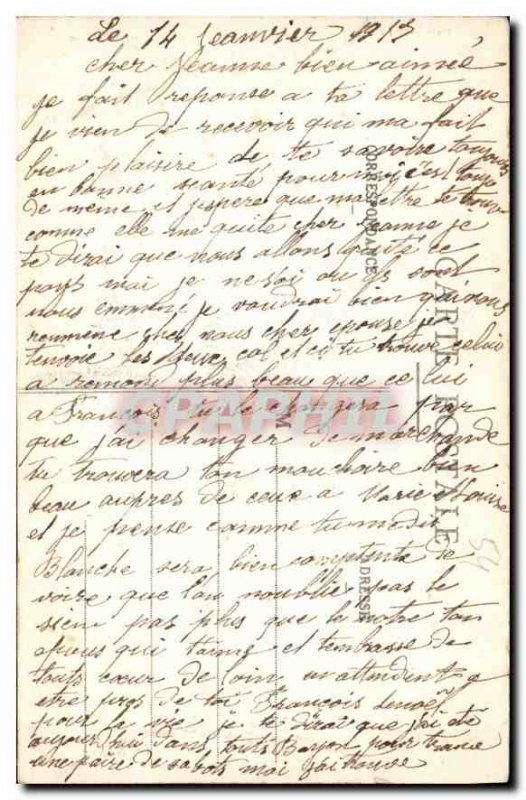 Le 14 Jeanvier 1915
cher Jeanne bien aimée
je fait reponse a ta lettre que
je vien de recevoir qui ma fait
bien plaisire de te savoire toujours
en bonne seanté pour moi cest toup
de même et j'espere que ma lettre te trouve
comme elle me quite cher Jeanne je
te dirai que nous allons quité ce
pays mai je ne sai ou ils vont
nous emmené je voudrai bien qu'ivous
roumène chez nous cher epouse je
tenvoie les deux col et ci tu trouve celui
a Fremond plus beau que ce lui
a François tu le changera par
que j'ai changer de marchande
tu trouvera ton mouchoire bien
beau aupres de ceux a Marie Louise
et je pense comme tu me dis
Blanche sera bien contente de
voire que l'on noublie pas le
sien pas plus que le notre ton
epoux qui t'aime et tembrasse de
tout cœur de loin en attendent
etre pres de toi François Lenoël
pour la vie je te dirai que j'ai eté
aujour d'hui dans touts Bayon pour trouve
une paire de sabots moi j'ai trouve
CORRESPONDANCE
CARTE POSTALE
ADRESSE
M
54
CPAPHIL